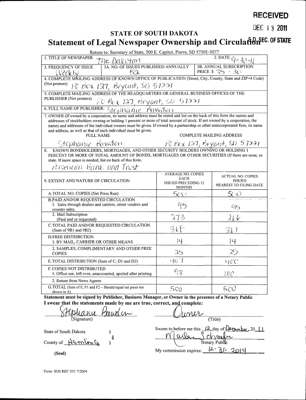 RECEIVED
DEC 13 2011
S.D. SEC. OF STATE
STATE OF SOUTH DAKOTA
Statement of Legal Newspaper Ownership and Circulation
Return to: Secretary of State, 500 E. Capitol, Pierre, SD 57501-5077
1. TITLE OF NEWSPAPER The Dakotan
2. DATE
3. FREQUENCY OF ISSUE Weekly
3A. NO. OF ISSUES PUBLISHED ANNUALLY 52
3B. ANNUAL SUBSCRIPTION PRICE $
4. COMPLETE MAILING ADDRESS OF KNOWN OFFICE OF PUBLICATION (Street, City, County, State and ZIP+4 Code)
(Not printers) P.O. Box 127, Bryant, SD 57221
5. COMPLETE MAILING ADDRESS OF THE HEADQUARTERS OF GENERAL BUSINESS OFFICES OF THE
PUBLISHER (Not printer) P.O. Box 127, Bryant, SD 57221
6. FULL NAME OF PUBLISHER: Stephanie
7. OWNER (If owned by a corporation, its name and address must be stated and list on the back of this form the names and
addresses of stockholders owning or holding 1 percent or more of total amount of stock. If not owned by a corporation, the
names and addresses of the individual owners must be given. If owned by a partnership or other unincorporated firm, its name
and address, as well as that of each individual must be given.
FULL NAME
COMPLETE MAILING ADDRESS
Stephanie
Box 127, Bryant, SD 57221
8. KNOWN BONDHOLDERS, MORTGAGEES, AND OTHER SECURITY HOLDERS OWNING OR HOLDING 1
PERCENT OR MORE OF TOTAL AMOUNT OF BONDS, MORTGAGES OR OTHER SECURITIES (If there are none, so
state. If more space is needed, list on back of this form.
Bank and Trust
9. EXTENT AND NATURE OF CIRCULATION
AVERAGE NO. COPIES EACH ISSUED PRECEDING 12 MONTHS
ACTUAL NO. COPIES ISSUED NEAREST TO FILING DATE
A. TOTAL NO. COPIES (Net Press Run) 500 500
B. PAID AND/OR REQUESTED CIRCULATION
1. Sales through dealers and carriers, street vendors and
counter sales. 95 95
2. Mail Subscription
(Paid and or requested) 273
C. TOTAL PAID AND/OR REQUESTED CIRCULATION
(Sum of 9B1 and 9B2) 368 361
D. FREE DISTRIBUTION
1. BY MAIL, CARRIER OR OTHER MEANS 14 14
2. SAMPLES, COMPLIMENTARY AND OTHER FREE
COPIES 25 25
E. TOTAL DISTRIBUTION (Sum of C, D1 and D2) 407 400
F. COPIES NOT DISTRIBUTED
1. Office use, left over, unaccounted, spoiled after printing 93 100
2. Return from News Agents
G. TOTAL (Sum of E, F1 and F2 - should equal net press run
shown in A) 500 500
Statement must be signed by Publisher, Business Manager, or Owner in the presence of a Notary Public
I swear that the statements made by me are true, correct, and complete:
Stephanie
(Signature)
Owner
(Title)
State of South Dakota )
County of Hamlin )
(Seal)
Sworn to before me this 12 day of December, 20 11
Notary Public
My commission expires: 12-31-2014
Form: SOS REC 051 7/2004